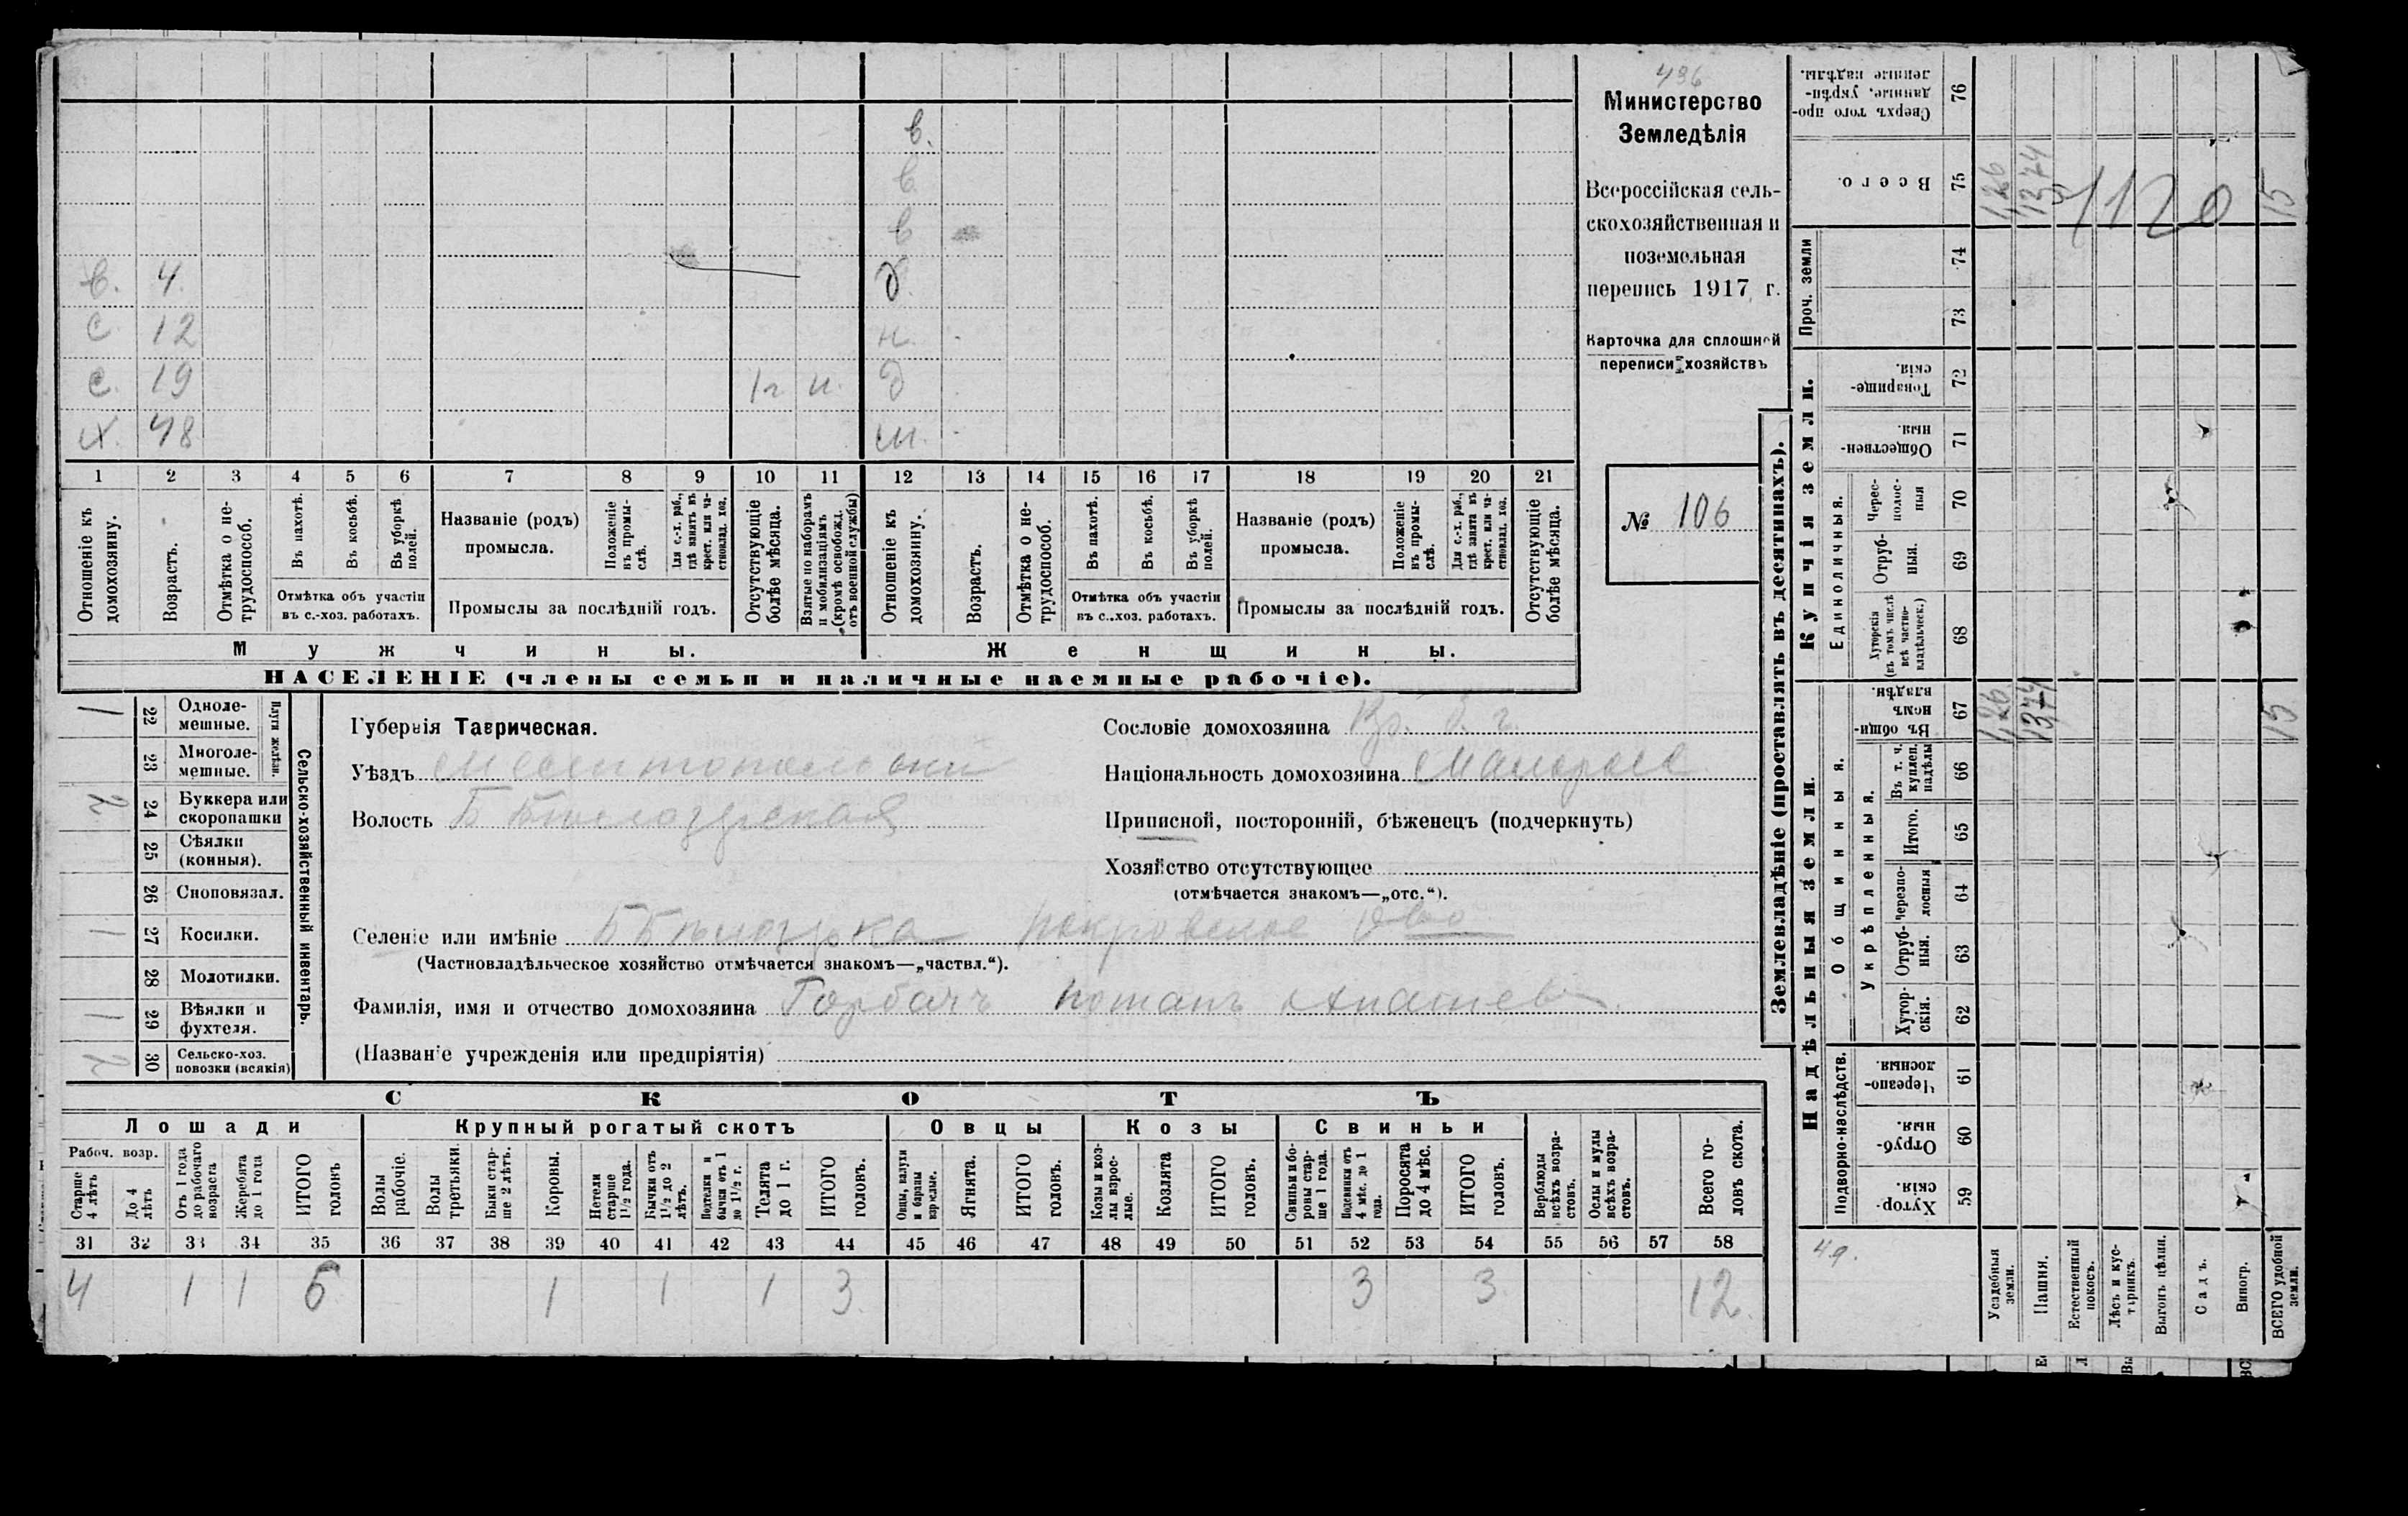 496
Министерство
Земледѣлія
Всероссійская сель-
скохозяйственная и
поземельная
перепись 1917 г.
Карточка для сплошной
переписи хозяйствъ
№ 106
в.
в
в
в. 4. д.
с 12 н.
с. 19 1 г. и. д
х. 48 ж.
1 2 3 4 5 6 7 8 9 10 11 12 13 14 15 16 17 18 19 20 21
Отношеніе къ домохозяину.
Возрастъ.
Отмѣтка о не-трудоспособ.
Въ пахотѣ.
Въ косьбѣ.
Въ уборкѣ полей.
Отмѣтка объ участіи
въ с.-хоз. работахъ.
Названіе (родъ)
промысла.
Положеніе въ промы-слѣ.
Для с.-х. раб., гдѣ занятъ въ крест. или ча-стновлад. хоз.
Промыслы за послѣдній годъ.
Отсутствующіе болѣе мѣсяца.
Взятые по наборамъ и мобилизаціямъ (кромѣ освобожд. отъ военной службы)
Отношеніе къ домохозяину.
Возрастъ.
Отмѣтка о не-трудоспособ.
Въ пахотѣ.
Въ косьбѣ.
Въ уборкѣ полей.
Отмѣтка объ участіи
въ с.-хоз. работахъ.
Названіе (родъ)
промысла.
Положеніе въ промы-слѣ.
Для с.-х. раб., гдѣ занята въ крест. или ча-стновлад. хоз.
Промыслы за послѣдній годъ.
Отсутствующіе болѣе мѣсяца.
Мужчины. Женщины.
НАСЕЛЕНІЕ (члены семьи и наличные наемные рабочіе).
Сельско-хозяйственный инвентарь.
Плуги желѣзн.
1 22 Одноле-мешные.
23 Многоле-мешные.
2 24 Буккера или скоропашки
25 Сѣялки (конныя).
26 Сноповязал.
1 27 Косилки.
28 Молотилки.
1 29 Вѣялки и фухтеля.
2 30 Сельско-хоз. повозки (всякія)
Губернія Таврическая.
Уѣздъ Мелитопольски
Волость Б Бѣлозерская
Сословіе домохозяина Кр. б. г.
Національность домохозяина Малоросс
Приписной, посторонній, бѣженецъ (подчеркнуть)
Хозяйство отсутствующее
(отмѣчается знакомъ—„отс.“).
Селеніе или имѣніе Б Бѣлозерка Покровское О-во
(Частновладѣльческое хозяйство отмѣчается знакомъ—„частвл.“).
Фамилія, имя и отчество домохозяина Горбачъ Потапъ
(Названіе учрежденія или предпріятія)
СКОТЪ
Лошади Крупный рогатый скотъ Овцы Козы Свиньи
Рабоч. возр.
Старше 4 лѣтъ
До 4 лѣтъ
Отъ 1 года до рабочаго возраста
Жеребята до 1 года
ИТОГО головъ
Волы рабочіе.
Волы третьяки.
Быки стар-ше 2 лѣтъ.
Коровы.
Нетели старше 1½ года.
Бычки отъ 1½ до 2 лѣтъ.
Подтелки и бычки отъ 1 до 1½ г.
Телята до 1 г.
ИТОГО головъ.
Овцы, валухи и бараны взрослые.
Ягнята.
ИТОГО головъ.
Козы и коз-лы взрос-лые.
Козлята
ИТОГО головъ.
Свиньи и бо-ровы стар-ше 1 года.
Подсвинки отъ 4 мѣс. до 1 года.
Поросята до 4 мѣс.
ИТОГО головъ.
Верблюды всѣхъ возра-стовъ.
Ослы и мулы всѣхъ возра-стовъ.
Всего го-ловъ скота.
31 32 33 34 35 36 37 38 39 40 41 42 43 44 45 46 47 48 49 50 51 52 53 54 55 56 57 58
4 1 1 6 1 1 1 3 3 3 12
Землевладѣніе (проставлять въ десятинахъ).
Сверхъ того про-данные, укрѣп-ленные надѣлы. 76
Всего. 75 1,26 13,74 1120 15
Проч. земли 74 73
Купчія земли.
Товарище-скія. 72
Обществен-ныя. 71
Единоличныя.
Черес-полос-ныя 70
Отруб-ныя. 69
Хуторскія (въ томъ числѣ всѣ частно-владѣльческ.) 68
Надѣльныя земли.
Общинныя.
Въ общин-номъ владѣн. 67 1,26 13,74 15
Укрѣпленныя.
Въ т. ч. куплен. надѣлы 66
Итого. 65
Черезпо-лосныя 64
Отруб-ныя. 63
Хутор-скія. 62
Подворно-наслѣдств.
Черезпо-лосныя 61
Отруб-ныя. 60
Хутор-скія. 59
4 д.
Усадебныя земли.
Пашня.
Естественный покосъ.
Лѣсъ и кус-тарникъ.
Выгонъ цѣлин.
Садъ.
Виногр.
ВСЕГО удобной земли.